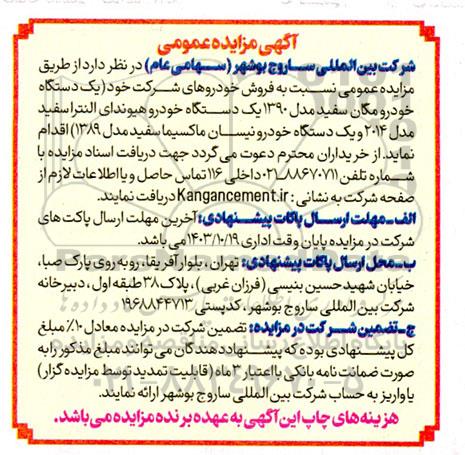 آگهی مزایده عمومی
شرکت بین المللی ساروج بوشهر (سهامی عام) در نظر دارد از طریق
مزایده عمومی نسبت به فروش خودروهای شرکت خود (یک دستگاه
خودرو مگان سفید مدل ۱۳۹۰ یک دستگاه خودرو هیوندای النترا سفید
مدل ۲۰۱۴ و یک دستگاه خودرو نیسان ماکسیما سفید مدل ۱۳۸۹) اقدام
نماید. از خریداران محترم دعوت می گردد جهت دریافت اسناد مزایده با
شماره تلفن ۸۸۶۷۰۷۱۱-۰۲۱ داخلی ۱۱۶ تماس حاصل و یا اطلاعات لازم از
صفحه شرکت به نشانی : Kangancement.ir دریافت نمایند.
الف-مهلت ارسال پاکات پیشنهادی: آخرین مهلت ارسال پاکت های
شرکت در مزایده پایان وقت اداری ۱۴۰۳/۱۰/۱۹ می باشد.
ب-محل ارسال پاکات پیشنهادی: تهران، بلوار آفریقا، رو به روی پارک صبا،
خیابان شهید حسین بنیسی (فرزان غربی)، پلاک ۳۸ طبقه اول، دبیرخانه
شرکت بین المللی ساروج بوشهر، کدپستی ۱۹۶۸۸۴۴۷۱۳
ج-تضمین شرکت در مزایده: تضمین شرکت در مزایده معادل ۱۰٪ مبلغ
کل پیشنهادی بوده که پیشنهاددهندگان می توانند مبلغ مذکور را به
صورت ضمانت نامه بانکی با اعتبار ۳ ماه (قابلیت تمدید توسط مزایده گزار)
یا واریز به حساب شرکت بین المللی ساروج بوشهر ارائه نمایند.
هزینه های چاپ این آگهی به عهده برنده مزایده می باشد.